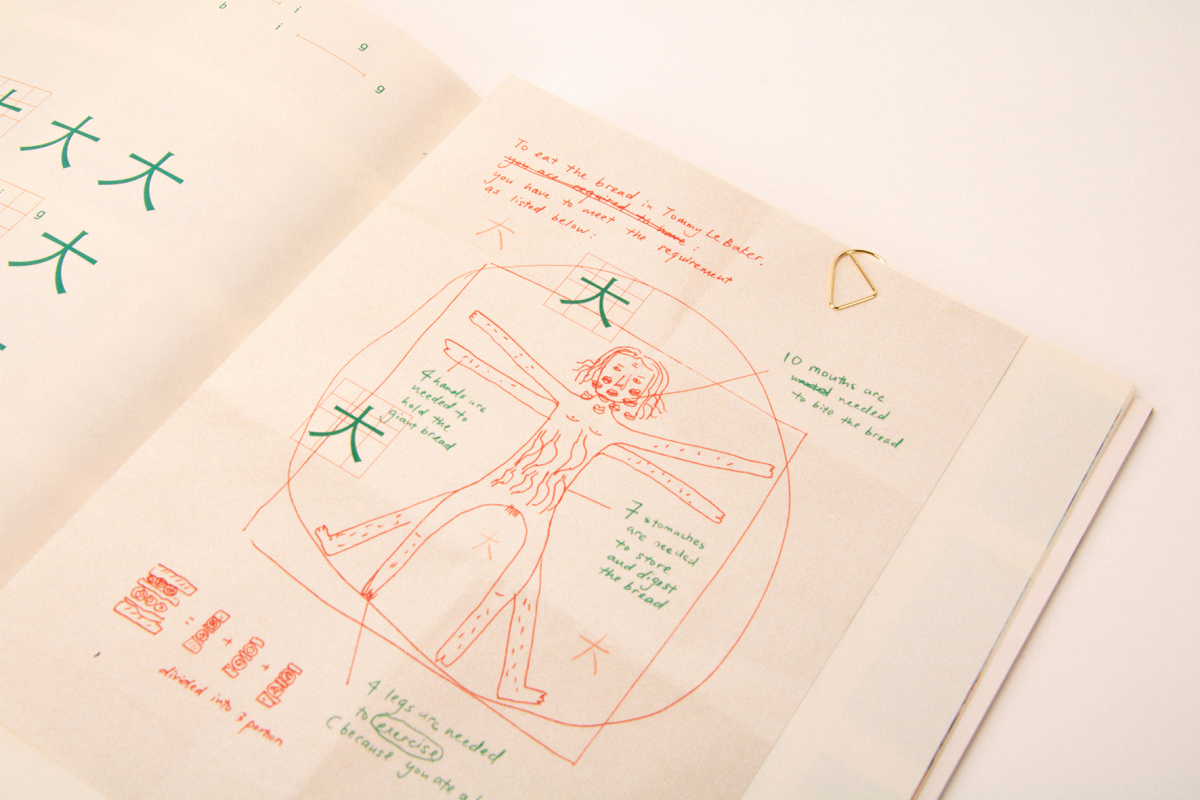 b i g
i g
g
大 大
大
To eat the bread in Tommy Le Baker,
you are required to have :
you have to meet the requirement
as listed below :
大
大
大
4 hands are
needed to
hold the
giant bread
10 mouths are
wanted needed
to bite the bread
7 stomaches
are needed
to store
and digest
the bread
大
大
divided into 3 portion
4 legs are needed
to exercise
(because you ate a